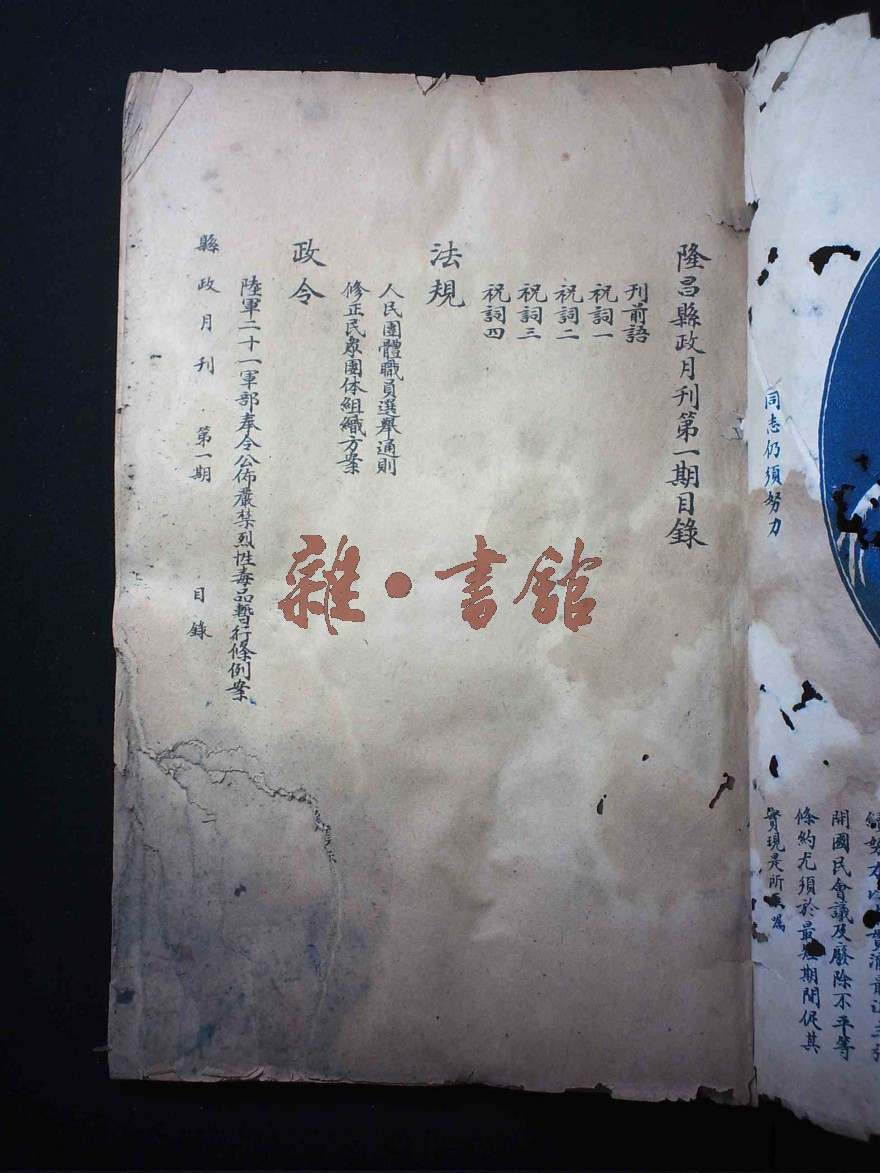 同志仍須努力
開國民會議及廢除不平等
條約尤須於最短期間促其
實現是所
隆昌縣政月刊第一期目錄
刊前語
祝詞一
祝詞二
祝詞三
祝詞四
法規
人民團體職員選舉通則
修正民衆團体組織方案
政令
陸軍二十一軍部奉令公佈嚴禁烈性毒品暫行條例案
縣政月刊 第一期 目錄
雜·書館